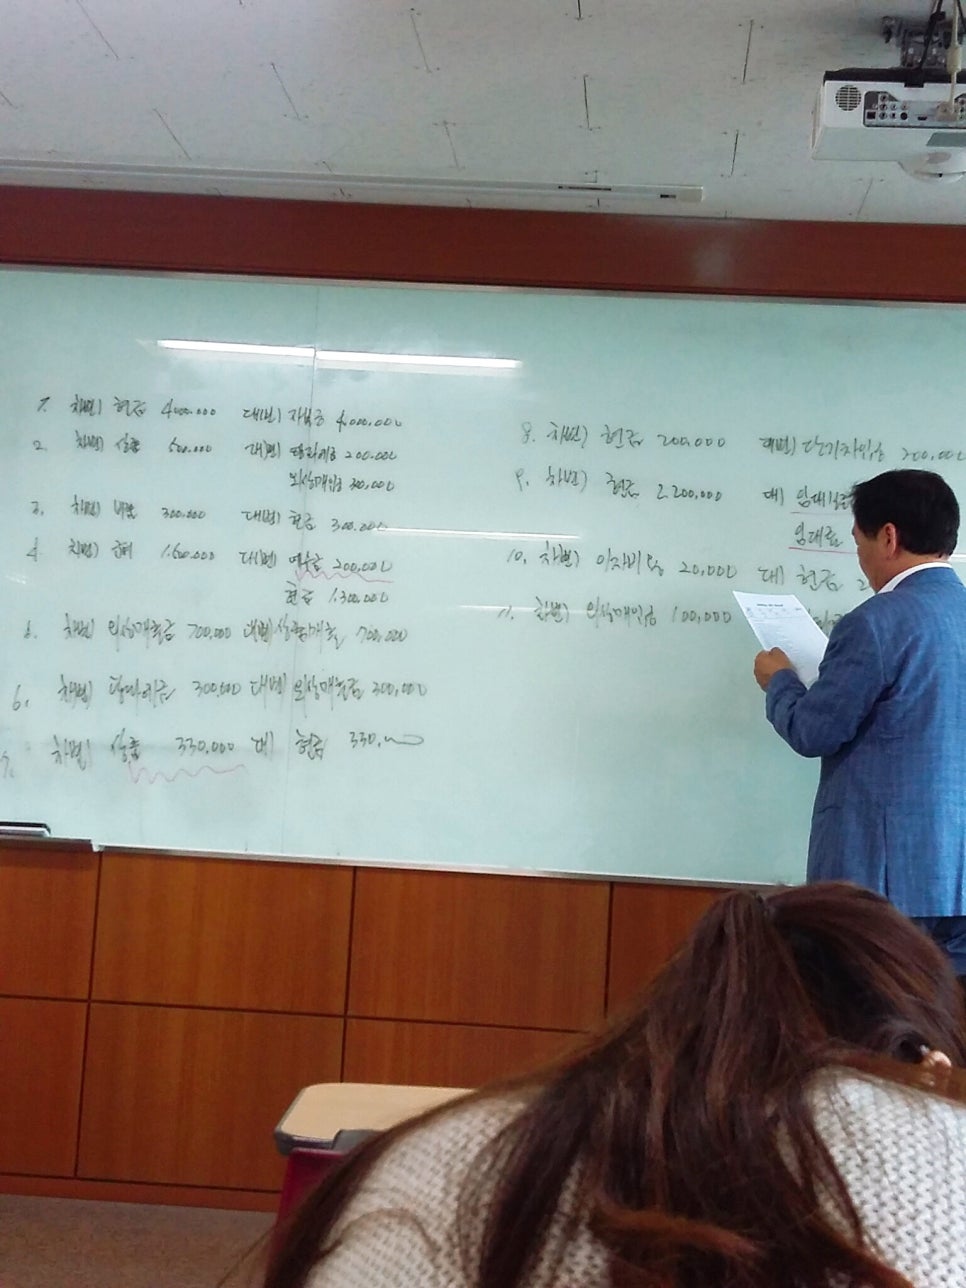 1. 차변) 현금 4,000,000 대변) 자본금 4,000,000
2. 차변) 상품 500,000 대변) 당좌예금 200,000
외상매입금 300,000
3. 차변) 비품 300,000 대변) 현금 300,000
4. 차변) 급여 1,500,000 대변) 예수금 200,000
현금 1,300,000
5. 차변) 외상매출금 700,000 대변) 상품매출 700,000
6. 차변) 당좌예금 300,000 대변) 외상매출금 300,000
7. 차변) 상품 330,000 대) 현금 330,000
8. 차변) 현금 200,000 대변) 단기차입금 200,000
9. 차변) 현금 2,200,000 대) 임대
임대료
10. 차변) 이자비용 20,000 대) 현금 2
11. 차변) 외상매입금 100,000